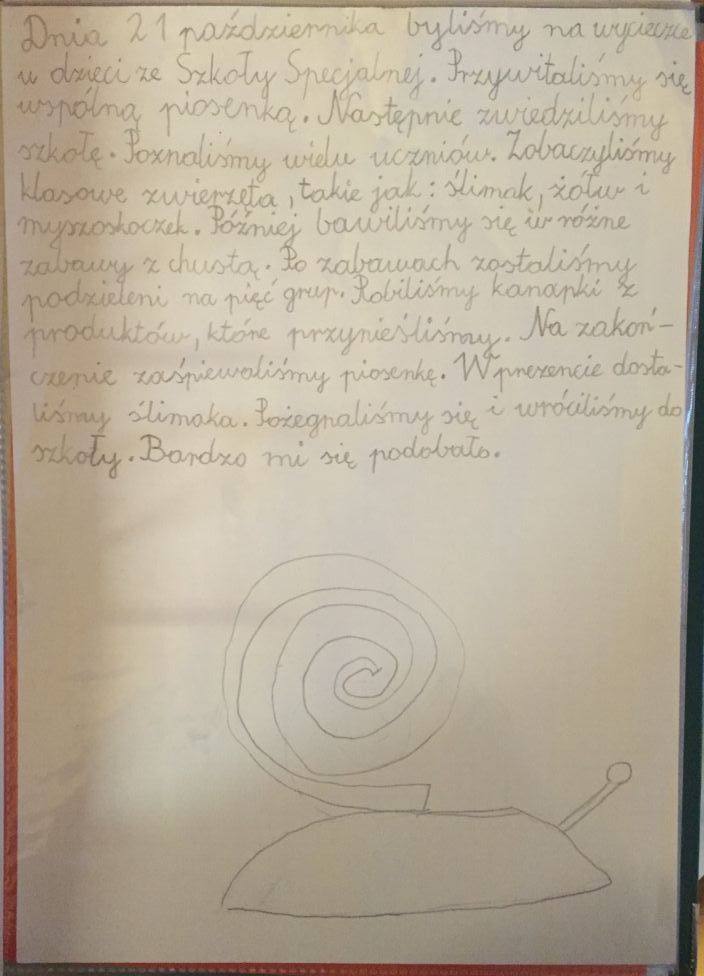 Dnia 21 października byliśmy na wycieczce
u dzieci ze Szkoły Specjalnej. Przywitaliśmy się
wspólną piosenką. Następnie zwiedziliśmy
szkołę. Poznaliśmy wielu uczniów. Zobaczyliśmy
klasowe zwierzęta, takie jak: ślimak, żółw i
myszoskoczek. Później bawiliśmy się w różne
zabawy z chustą. Po zabawach zostaliśmy
podzieleni na pięć grup. Robiliśmy kanapki z
produktów, które przynieśliśmy. Na zakoń-
czenie zaśpiewaliśmy piosenkę. W prezencie dosta-
liśmy ślimaka. Pożegnaliśmy się i wróciliśmy do
szkoły. Bardzo mi się podobało.